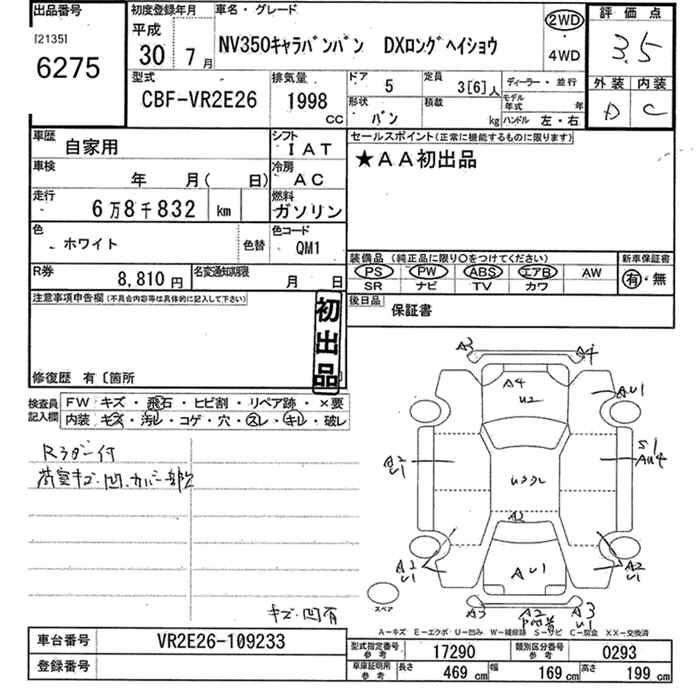 出品番号
[2135]
6275
初度登録年月
平成
30年 7月
車名・グレード
NV350キャラバンバン DXロングヘイショウ
2WD
4WD
評価点
3.5
外装 内装
D C
型式
CBF-VR2E26
排気量
1998
CC
ドア
5
定員
3[6]人
形状
バン
積載
kg
ディーラー・並行
モデル年式 年
ハンドル 左・右
車歴
自家用
シフト
IAT
車検
年 月( 日)
冷房
AC
走行
6万8千832 km
燃料
ガソリン
色
ホワイト
色替
色コード
QM1
R券
8,810円
名変通知期限
月 日
セールスポイント(正常に機能するものに限ります)
★AA初出品
装備品(純正品に限り○をつけてください)
PS PW ABS エアB AW
SR ナビ TV カワ
新車保証書
有・無
後日品
保証書
注意事項申告欄(不具合内容等は具体的に記入して下さい)
初出品
修復歴 有〔箇所
検査員記入欄
FW キズ・飛石・ヒビ割・リペア跡・×要
内装 キズ・汚レ・コゲ・穴・スレ・キレ・破レ
Rラダー付
荷室キズ・凹・カバー部欠
キズ・凹有
A3
A4
A4
U2
AU1
A2
U1
S1
AU4
A2
A2
U1
A2
U1
AU1
スペア
A3
A2
A3
U1
A-キズ E-エクボ U-凹み W-補修跡 S-サビ C-腐食 XX-交換済
車台番号
VR2E26-109233
登録番号
型式指定番号 参考
17290
類別区分番号 参考
0293
車庫証明用 参考
長さ 469 cm 幅 169 cm 高さ 199 cm